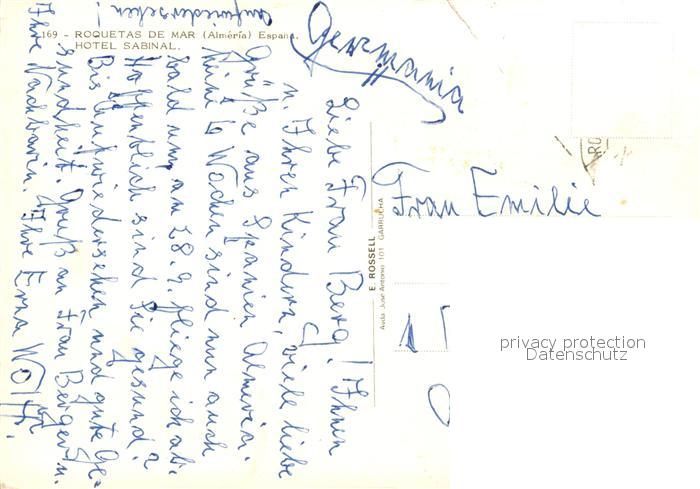 169 - ROQUETAS DE MAR (Almería) España.
HOTEL SABINAL.
Germania
Liebe Frau Berg! Ihnen
u. Ihren Kindern, viele liebe
Grüße aus Spanien Almeria.
Meine 4 Wochen sind nun auch
bald um, am 28.9. fliege ich ab.
Hoffentlich sind Sie gesund?
Bis Aufwiedersehen und gute Ge-
sundheit Gruß an Frau
Ihre Nachbarin. Ihre Erna Wolff.
Aufwiedersehen!
E. ROSSELL
Avda. José Antonio 101 GARRUCHA
Frau Emilie
1
RO
privacy protection
Datenschutz